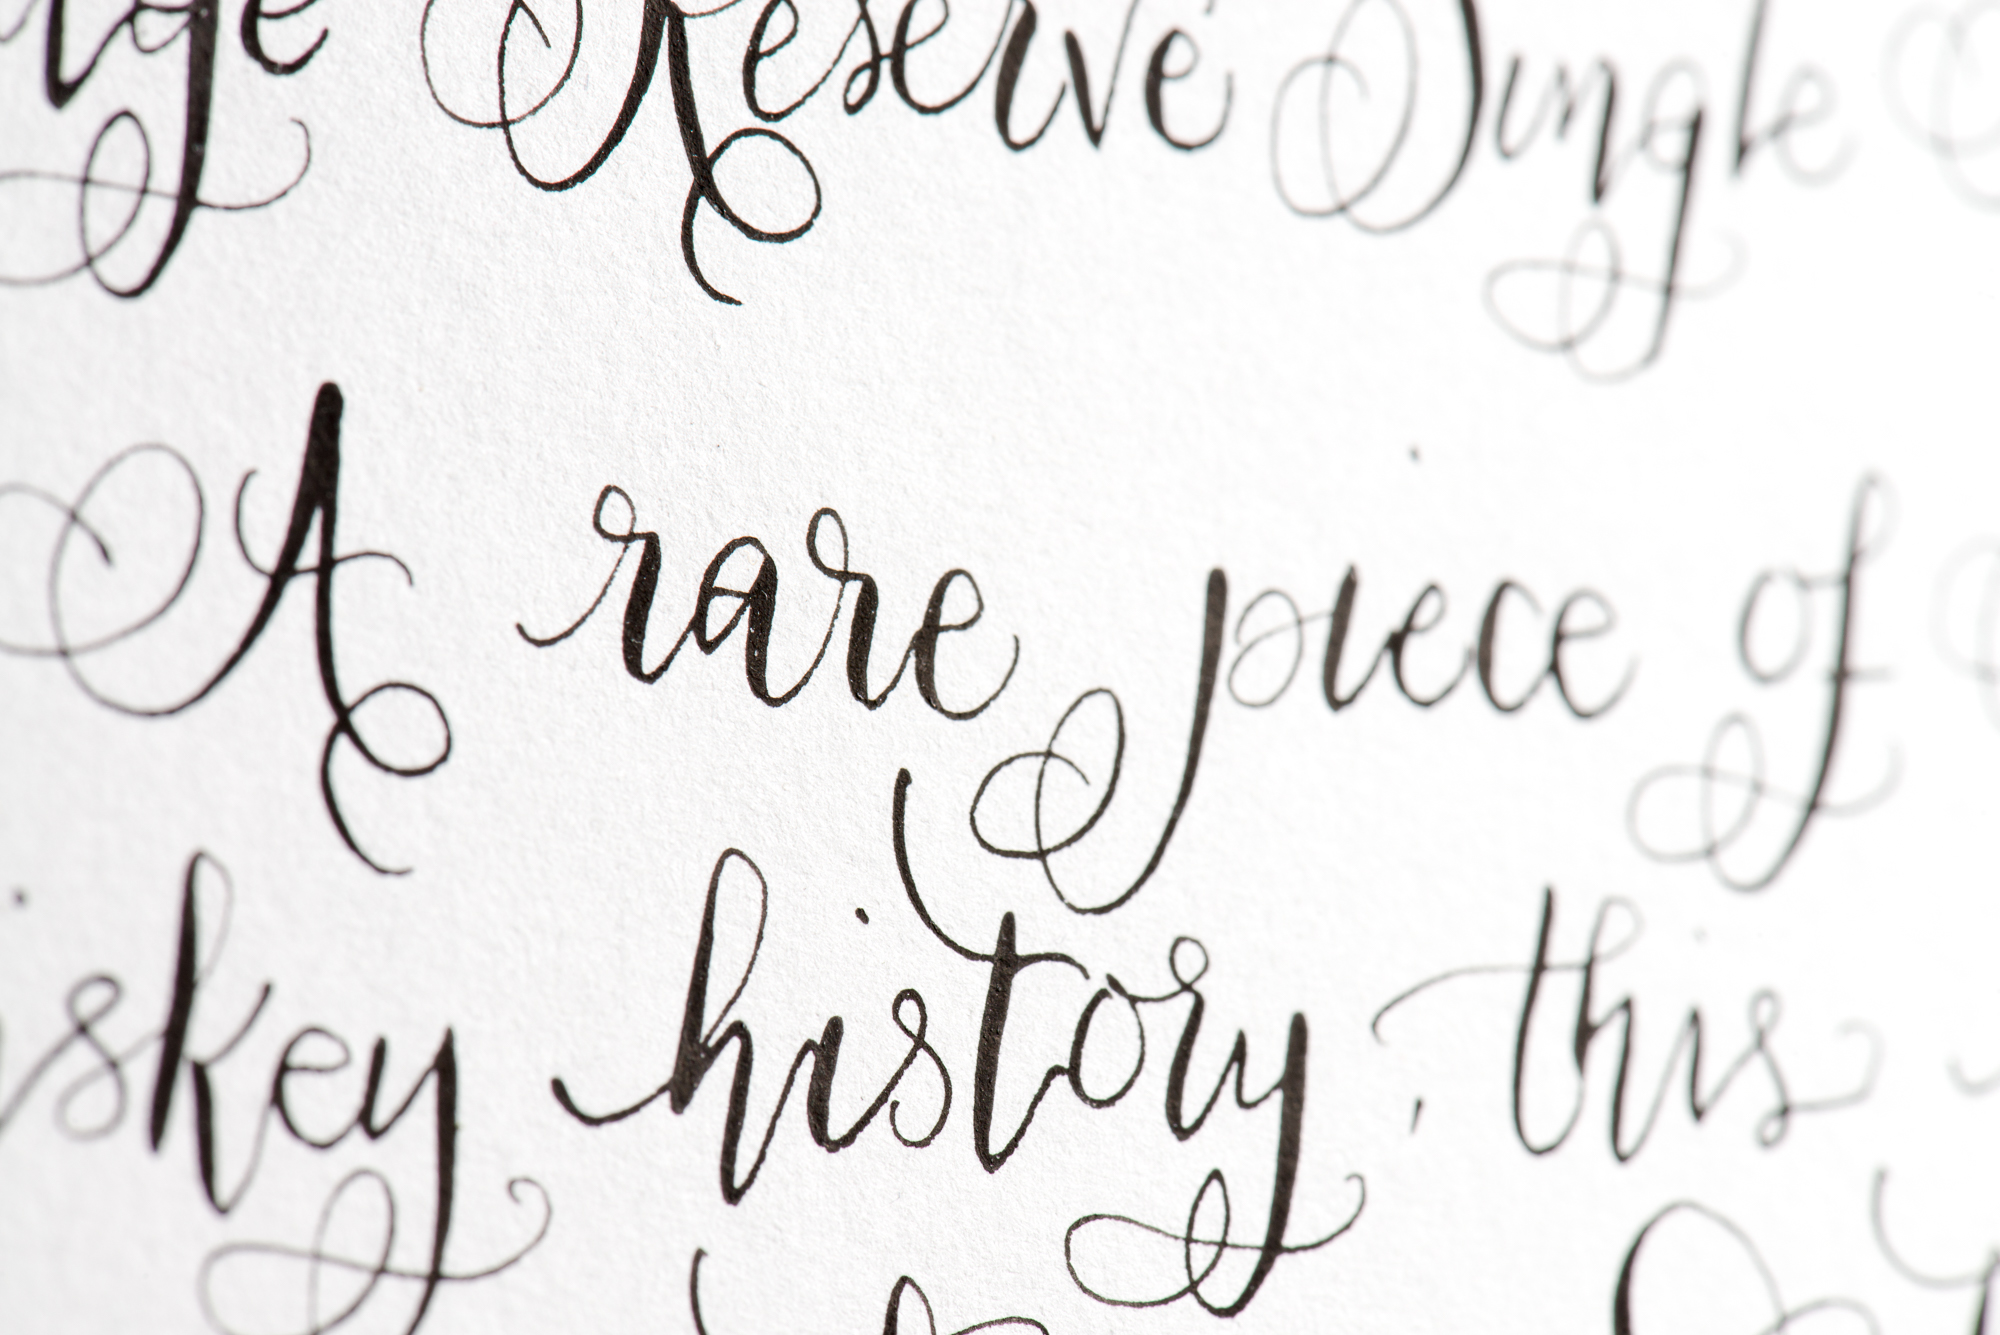 Reserve Single
A rare piece of
history, this